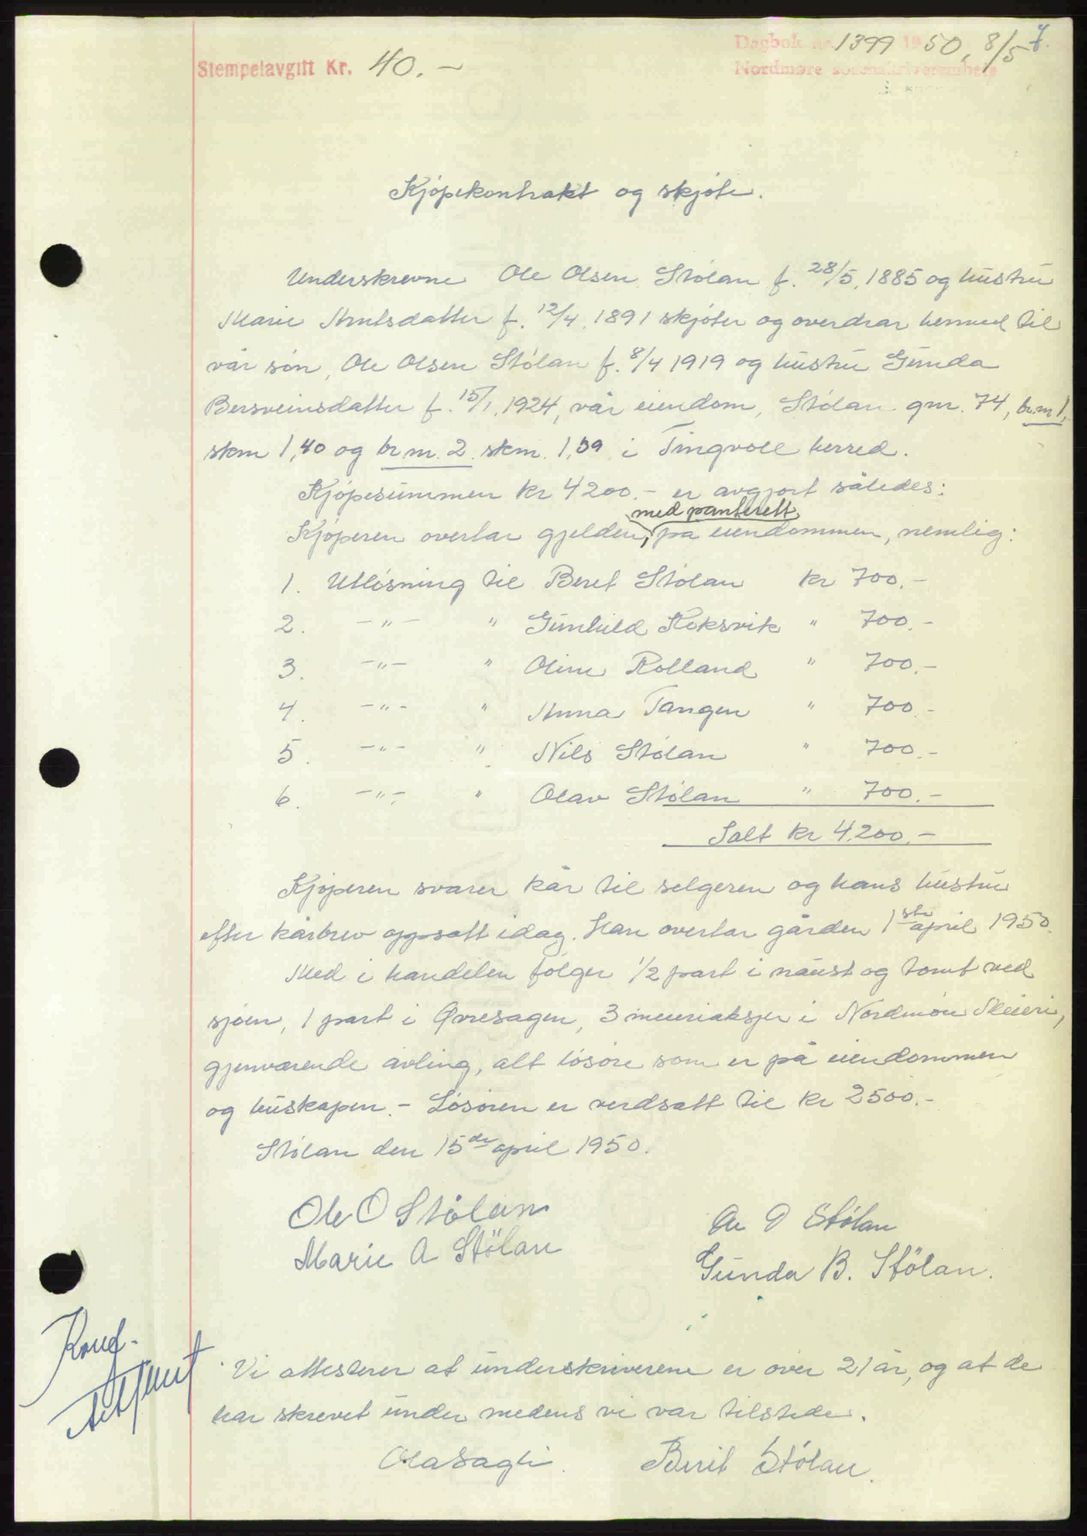 Stempelavgift Kr. 40.-
Dagbok nr. 1399 1950, 8/5
7.
Nordmøre sorenskriverembete
Kjøpekontrakt og skjøte.
Underskrevne Ole Olsen Stølan f. 28/5, 1885 og hustru
Marie Arntsdatter f. 12/4, 1891 skjøter og overdrar hermed til
vår søn, Ole Olsen Stølan f. 8/4 1919 og hustru Gunda
Bersveinsdatter f. 15/1, 1924, vår eiendom, Stølan gnr. 74, br.nr 1,
skm 1,40 og br.nr. 2 skm. 1,09 i Tingvoll herred.
Kjøpesummen kr 4200.- er avgjort således:
med panterett
Kjøperen overtar gjelden, på eiendommen, nemlig:
1. Utløsning til Beret Stølan kr 700.-
2. -"- " Gunhild Koksvik " 700.-
3. -"- " Oline Rolland " 700.-
4. -"- " Anna Tangen " 700.-
5. -"- " Nils Stølan " 700.-
6. -"- " Olav Stølan " 700.-
Ialt kr 4.200.-
Kjøperen svarer kår til selgeren og hans hustru
efter kårbrev oppsatt idag. Han overtar gården 1ste april 1950.
Med i handelen følger 1/2 part i naust og tomt ved
sjøen, 1 part i Øvresagen, 3 meieriaksjer i Nordmøre Meieri,
gjenværende avling, alt løsøre som er på eiendommen
og huskapen. - Løsøren er verdsatt til kr 2500.-
Stølan den 15de april 1950.
Ole O Stølan
Marie A Stølan
Ole O Stølan
Gunda B. Stølan.
Vi attesterer at underskriverene er over 21 år, og at de
har skrevet under medens vi var tilstede.
Ola Sagli. Berit Stølan.